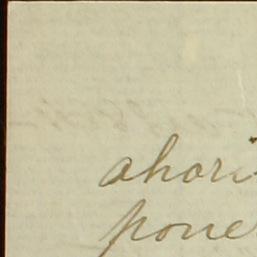 ahori
pone